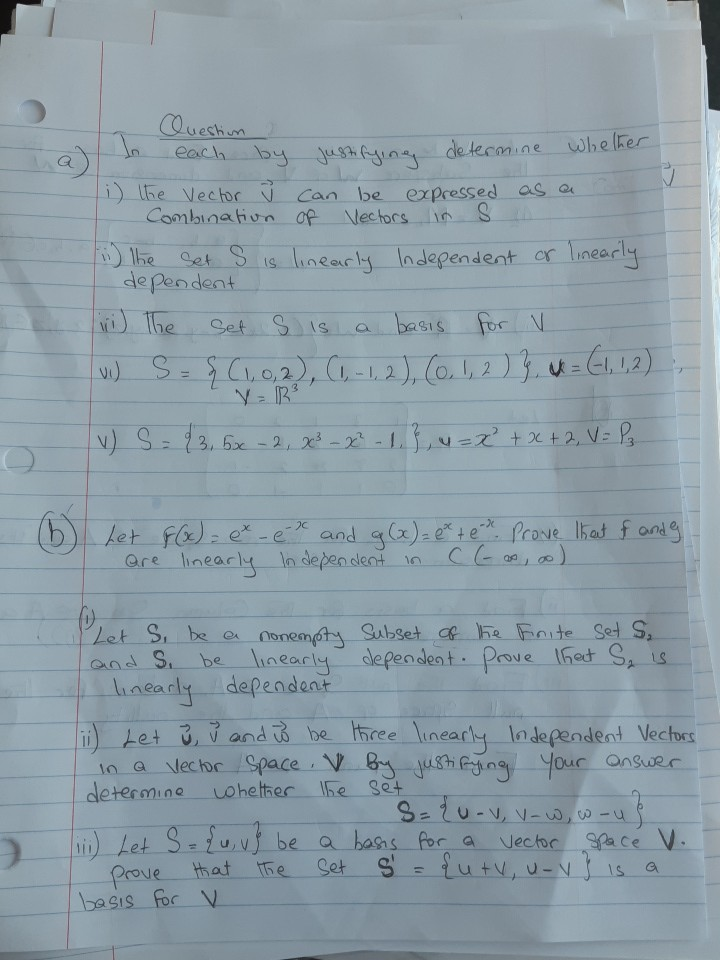 Question
a) In each by justifying determine whether
i) the vector v⃗ can be expressed as a
Combination of Vectors in S
ii) The set S is linearly Independent or linearly
dependent
iii) The Set S is a basis for V
vi) S = { (1,0,2), (1,-1,2), (0,1,2) }, u = (-1,1,2)
V = ℝ³
v) S = {3, 5x - 2, x³ - x² - 1. }, u = x² + x + 2, V = P₃
(b) Let f(x) = eˣ - e⁻ˣ and g(x) = eˣ + e⁻ˣ. Prove that f and g
are linearly Independent in C (-∞, ∞)
(i)
Let S₁ be a nonempty Subset of the Finite Set S₂
and S₁ be linearly dependent. Prove that S₂ is
linearly dependent
ii) Let u⃗, v⃗ and w⃗ be three linearly Independent Vectors
in a vector Space. V By justifying your answer
determine whether the set
S = {u-v, v-w, w-u}
iii) Let S = {u,v} be a basis for a vector space V.
prove that the set S' = {u+v, u-v} is a
basis for V